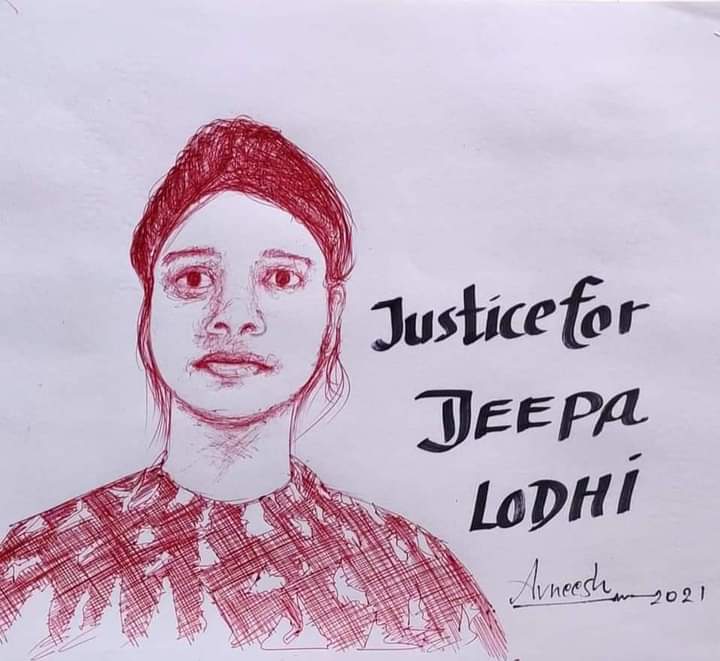 Justice for
DEEPA
LODHI
Avneesh 2021